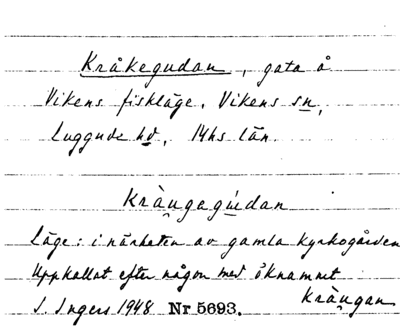 Kråkegudan, gata å
Vikens fiskläge, Vikens sn,
Luggude hd, Mhs län.
Kràu̯gagúdan
Läge: i närheten av gamla kyrkogården
Uppkallat efter någon med öknamnet
Kràu̯gan
I. Ingers 1948 Nr 5693.